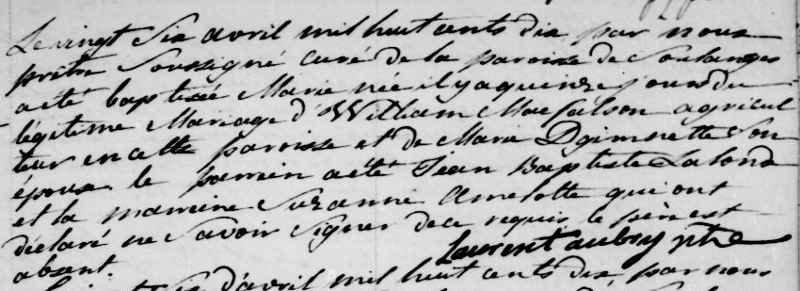 Le vingt Six avril mil huit cents dix par nous
prêtre Soussigné curé de la paroisse de Soulanges
a été baptisée Marie née il y a quinze jours du
légitime Mariage d'William Mac agricul
teur en cette paroisse et de Marie Son
épouse le parrein a été Jean Baptiste Lalond
et la marreine Suzanne Amelotte qui ont
déclaré ne Savoir Signer de ce requis le père est
absent. Laurent aubry ptre
Six d'avril mil huit cents dix, par nous